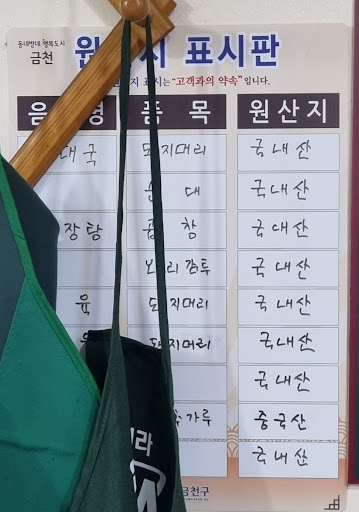 동네방네 행복도시
금천
원 지 표시판
지 표시는 "고객과의 약속"입니다.
음 명 품 목 원산지
대국 돼지머리 국내산
대 국내산
장탕 곱 창 국내산
오 리감투 국내산
육 돼지머리 국내산
돼지머리 국내산
국내산
가루 중국산
국내산
라
금천구